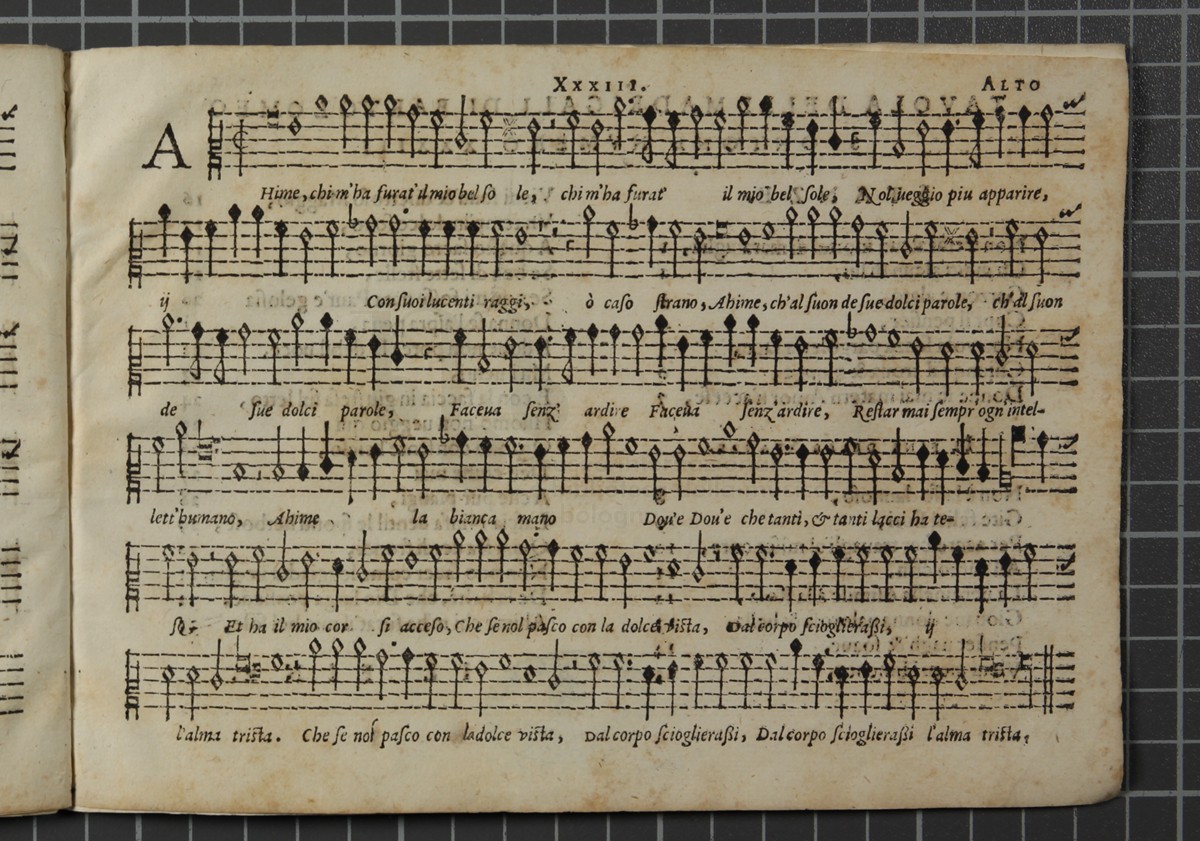 XXXIII. ALTO
A
Hime, chi m'ha furat'il mio bel so le, chi m'ha furat' il mio bel sole, Nol ueggio piu apparire,
ij Con suoi lucenti raggi, ò caso strano, Ahime, ch'al suon de sue dolci parole, ch'al suon
de sue dolci parole, Faceua senz' ardire Faceua senz'ardire, Restar mai sempr'ogn'intel-
lett'humano, Ahime la bianca mano Dou'e Dou'e che tanti, & tanti lacci ha te-
so Et ha il mio cor si acceso, Che se nol pasco con la dolce vista, Dal corpo scioglierassi, ij
l'alma trista. Che se nol pasco con la dolce vista, Dal corpo scioglierassi, Dal corpo scioglierassi l'alma trista.